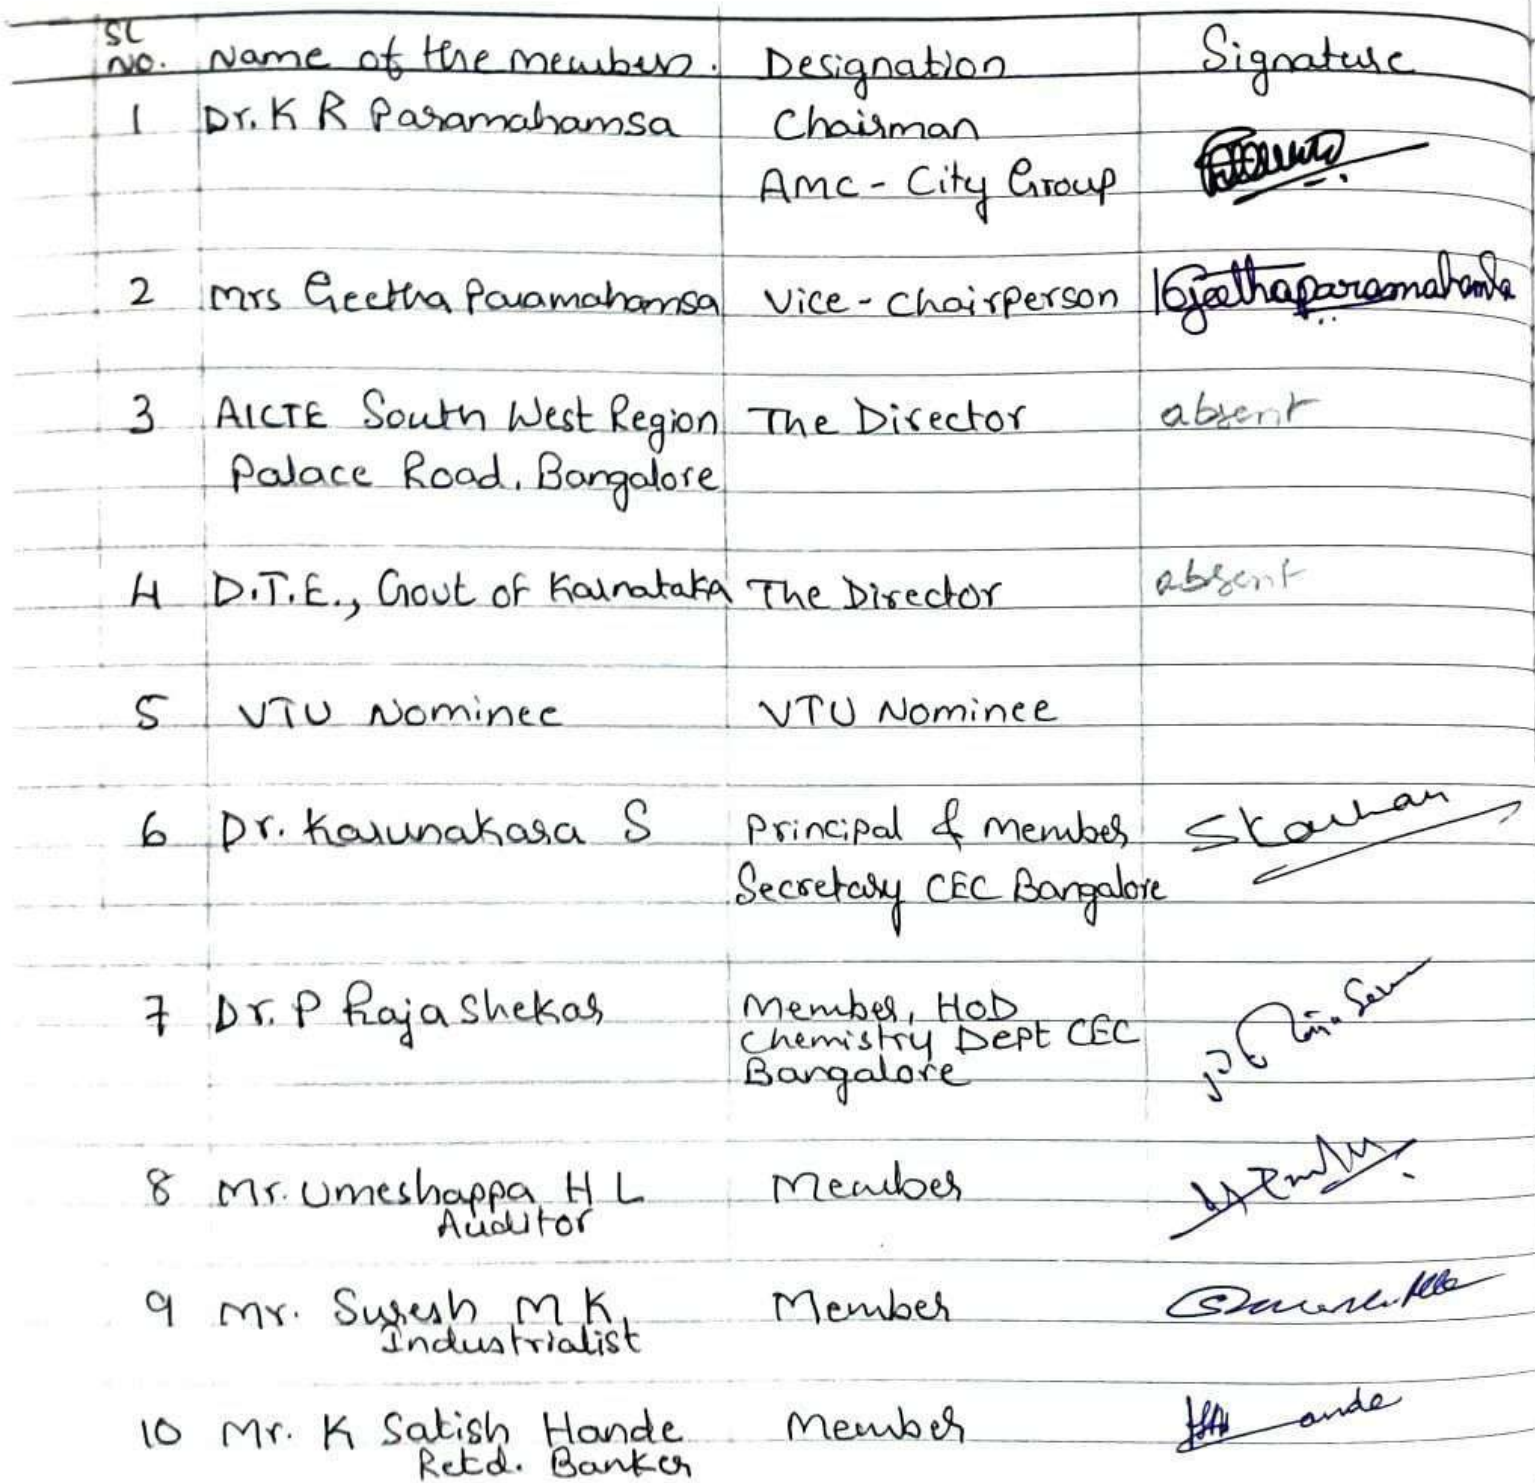 SL
NO. Name of the members. Designation Signature
1 Dr. K R Paramahamsa Chairman
AMC - City Group
2 Mrs Geetha Paramahamsa Vice - Chairperson Geethaparamahamsa
3 AICTE South West Region The Director absent
Palace Road, Bangalore
4 D.T.E., Govt of Karnataka The Director absent
5 VTU Nominee VTU Nominee
6 Dr. Karunakara S Principal & Member
Secretary CEC Bangalore
7 Dr. P Raja Shekar Member, HOD
Chemistry Dept CEC
Bangalore
8 Mr. Umeshappa H L Member
Auditor
9 Mr. Suresh M K, Member
Industrialist
10 Mr. K Satish Hande Member
Retd. Banker